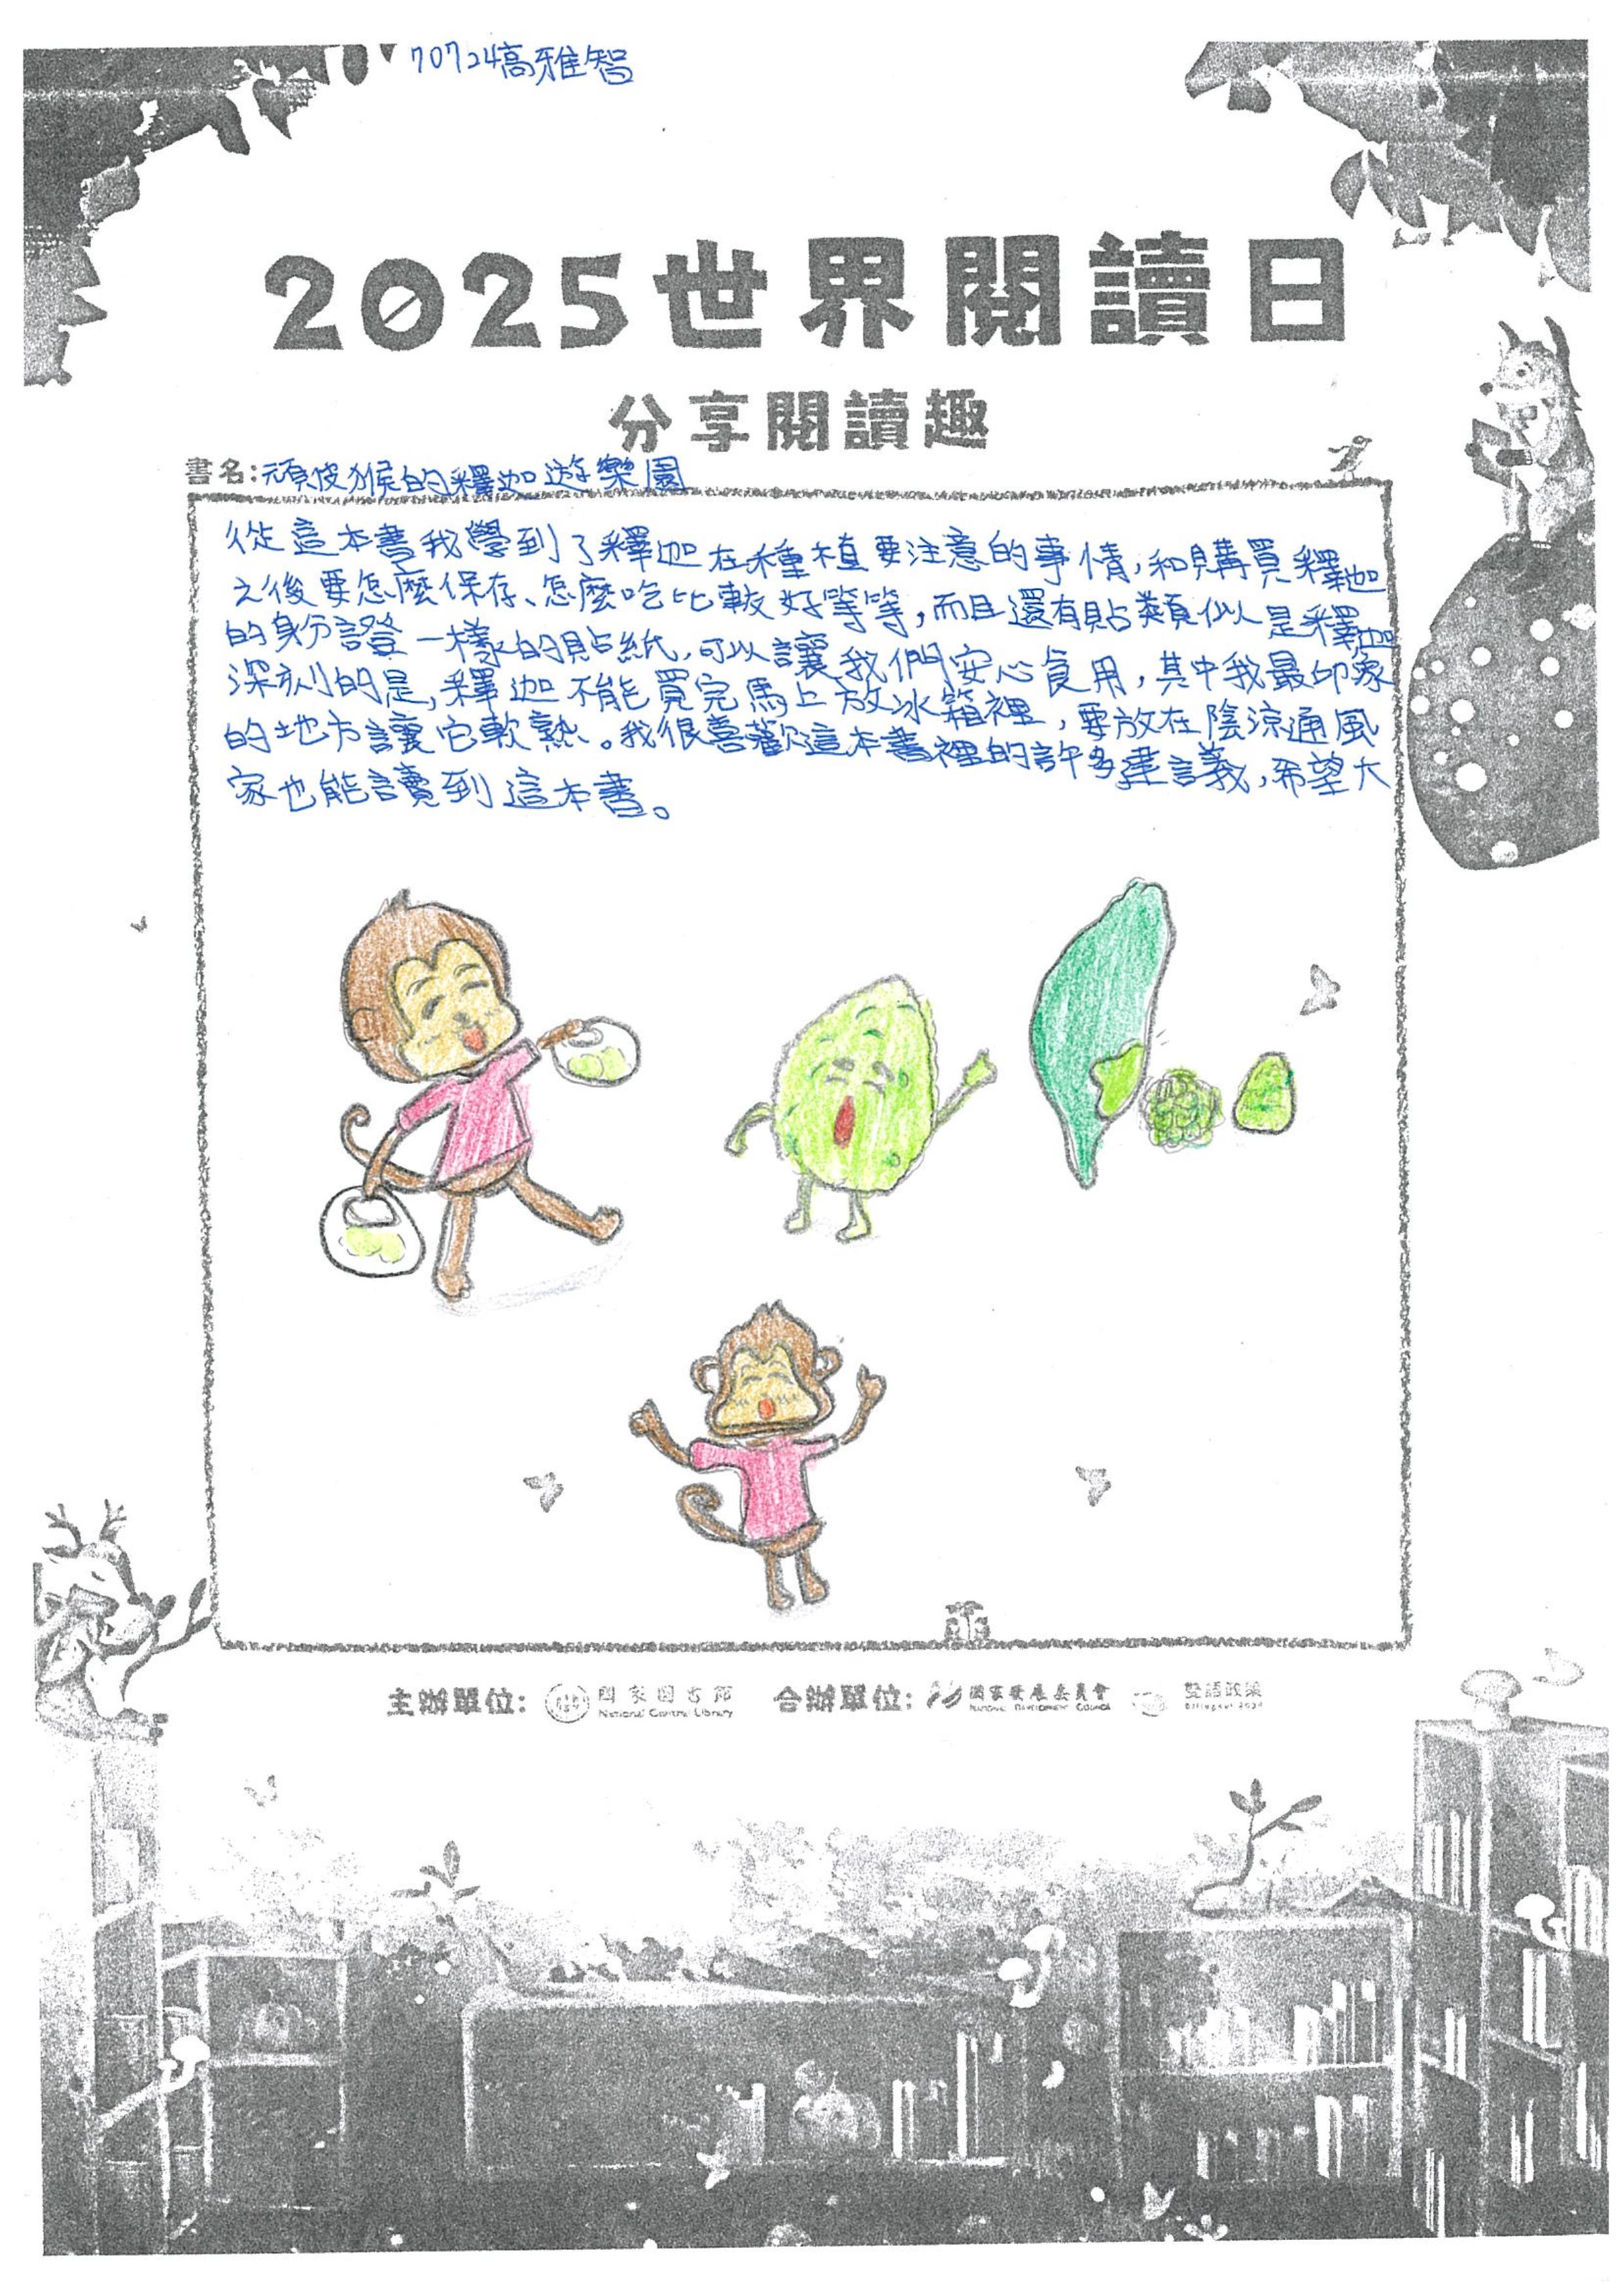 70724高雅智
2025世界閱讀日
分享閱讀趣
書名:頑皮猴的釋迦遊樂園
從這本書我學到了釋迦在種植要注意的事情,和購買釋迦
之後要怎麼保存、怎麼吃比較好等等,而且還有貼類似是釋迦
的身分證一樣的貼紙,可以讓我們安心食用,其中我最印象
深刻的是,釋迦不能買完馬上放冰箱裡,要放在陰涼通風
的地方讓它軟熟。我很喜歡這本書裡的許多建議,希望大
家也能讀到這本書。
主辦單位: 國家圖書館 National Central Library 合辦單位: 國家發展委員會 National Development Council 雙語政策 Bilingual 2030